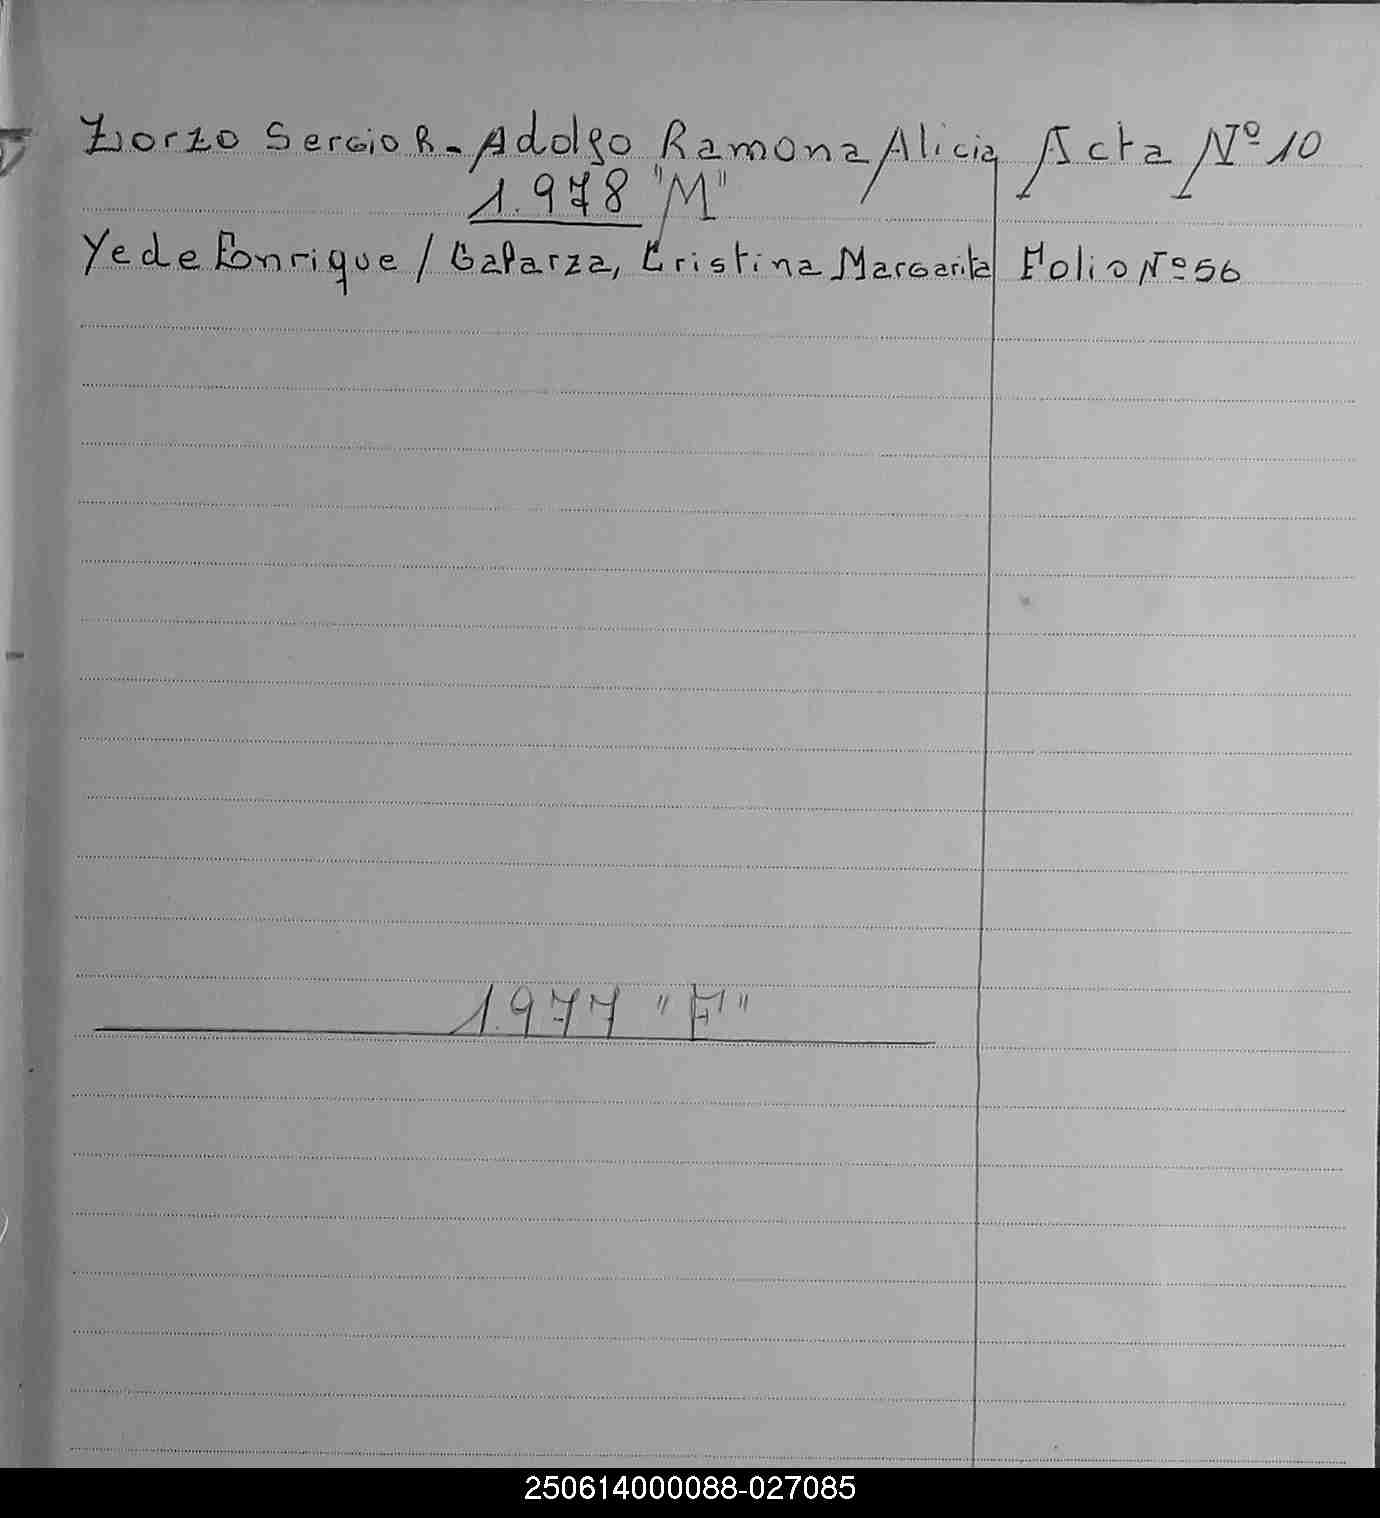 Ziorzo Sergio R. - Adolfo Ramona Alicia Acta Nº 10
1.978 "M"
Yede Enrique / Gaparza, Cristina Margarita Folio Nº 56
1977 "F"
250614000088-027085